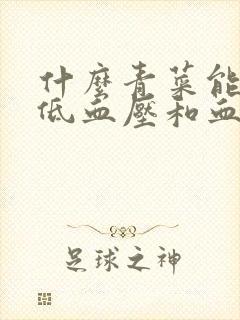 什麼青菜能
低血壓和血
足球之神